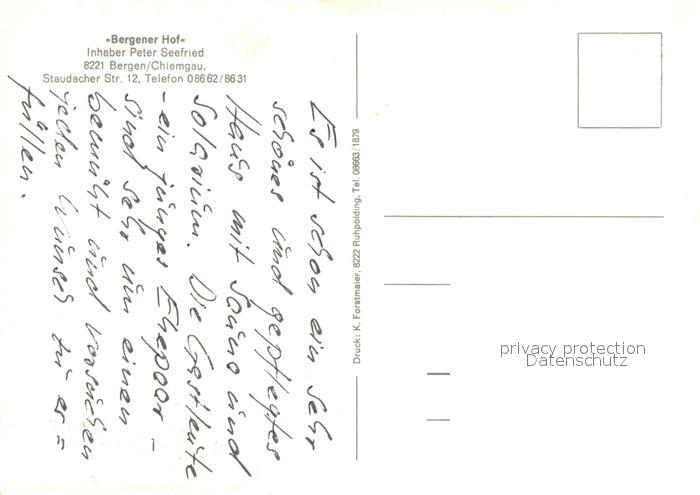 »Bergener Hof«
Inhaber Peter Seefried
8221 Bergen/Chiemgau,
Staudacher Str. 12, Telefon 08662/8631
Es ist schon ein sehr
schönes und gepflegtes
Haus mit Sauna und
Solarium. Die Gastleute
- ein junges Ehepaar -
sind sehr um einen
bemüht und versuchen
jeden Wunsch zu er=
füllen.
Druck: K. Forstmaier, 8222 Ruhpolding, Tel. 08663/1879
privacy protection
Datenschutz